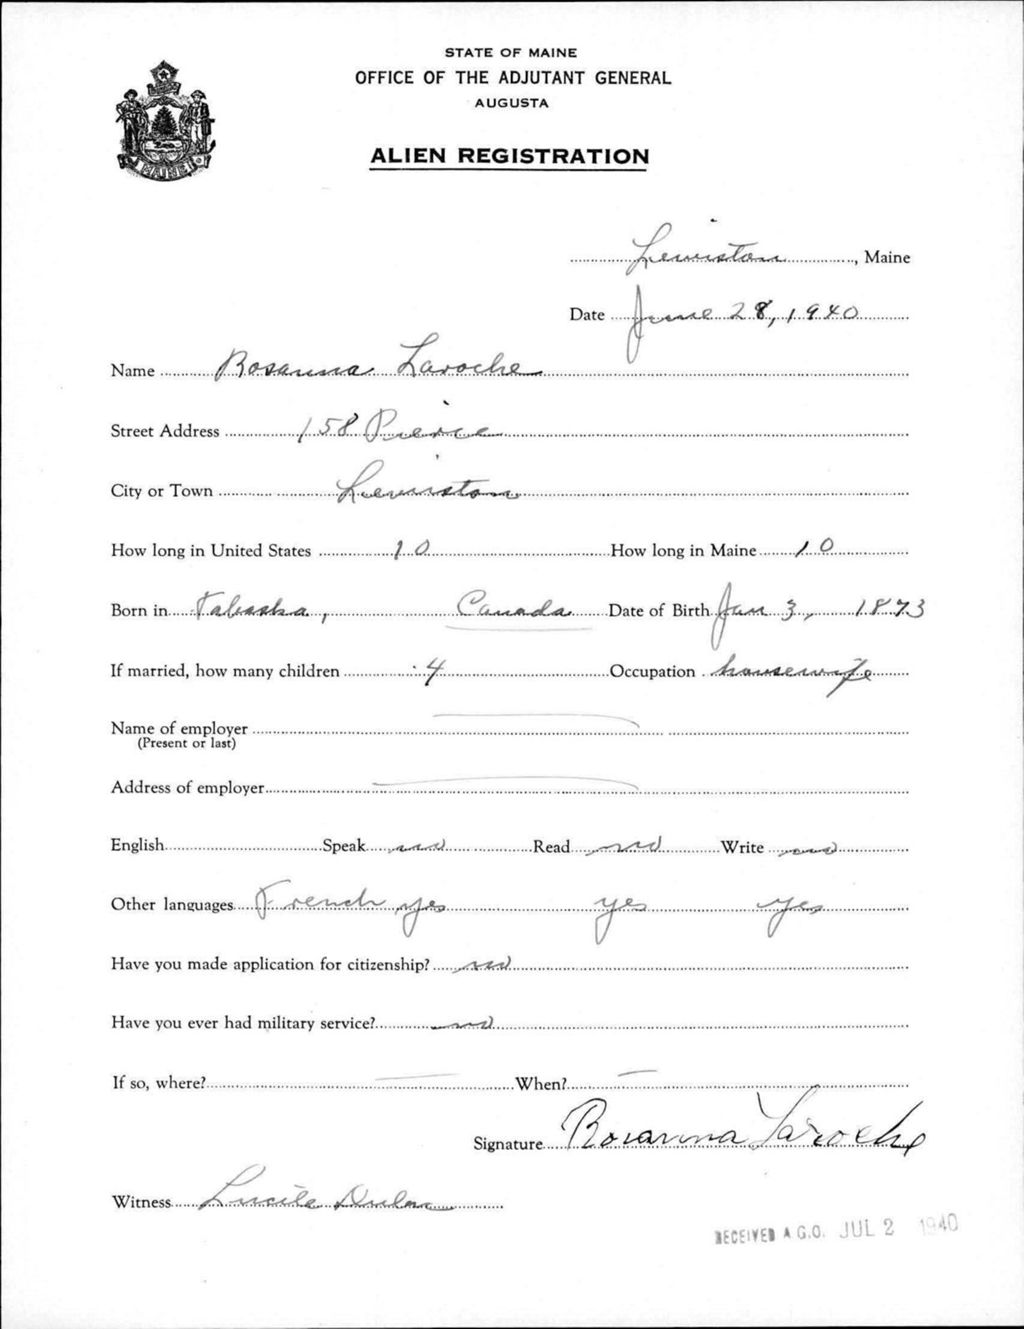 STATE OF MAINE
OFFICE OF THE ADJUTANT GENERAL
AUGUSTA
ALIEN REGISTRATION
MAINE
Lewiston, Maine
Date June 28, 1940
Name Rosanna Laroche
Street Address 158 Pierce
City or Town Lewiston
How long in United States 10 How long in Maine 10
Born in , Canada Date of Birth Jan 3, 1873
If married, how many children 4 Occupation housewife
Name of employer
(Present or last)
Address of employer
English Speak no Read no Write no
Other languages French yes yes yes
Have you made application for citizenship? no
Have you ever had military service? no
If so, where? — When? —
Signature Rosanna Laroche
Witness Lucile
RECEIVED A.G.O. JUL 2 1940